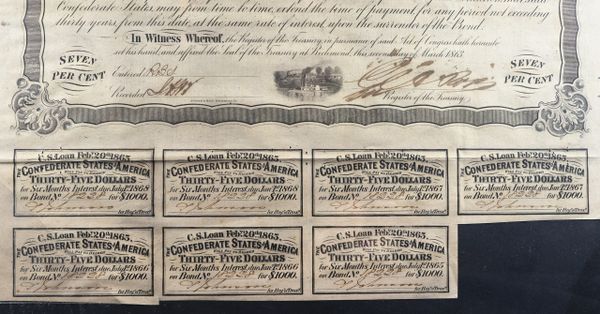 Confederate States may from time to time, extend the time of payment for any period not exceeding
thirty years from this date, at the same rate of interest, upon the surrender of the Bond.
In Witness Whereof, the Register of the Treasury, in pursuance of said Act of Congress hath hereunto
set his hand, and affixed the Seal of the Treasury at Richmond, this second day of March 1863
SEVEN PER CENT
Entered
Recorded
Register of the Treasury.
SEVEN PER CENT
C.S. Loan Feb. 20th 1863.
THE CONFEDERATE STATES OF AMERICA
WILL PAY TO BEARER
THIRTY-FIVE DOLLARS
for Six Months Interest due July 1st 1868
on Bond No for $1000.
for Reg. Treas.
C.S. Loan Feb. 20th 1863.
THE CONFEDERATE STATES OF AMERICA
WILL PAY TO BEARER
THIRTY-FIVE DOLLARS
for Six Months Interest due Jany 1st 1868
on Bond No for $1000.
for Reg. Treas.
C.S. Loan Feb. 20th 1863.
THE CONFEDERATE STATES OF AMERICA
WILL PAY TO BEARER
THIRTY-FIVE DOLLARS
for Six Months Interest due July 1st 1867
on Bond No for $1000.
for Reg. Treas.
C.S. Loan Feb. 20th 1863.
THE CONFEDERATE STATES OF AMERICA
WILL PAY TO BEARER
THIRTY-FIVE DOLLARS
for Six Months Interest due Jany 1st 1867
on Bond No for $1000.
for Reg. Treas.
C.S. Loan Feb. 20th 1863.
THE CONFEDERATE STATES OF AMERICA
WILL PAY TO BEARER
THIRTY-FIVE DOLLARS
for Six Months Interest due July 1st 1866
on Bond No for $1000.
for Reg. Treas.
C.S. Loan Feb. 20th 1863.
THE CONFEDERATE STATES OF AMERICA
WILL PAY TO BEARER
THIRTY-FIVE DOLLARS
for Six Months Interest due Jany 1st 1866
on Bond No for $1000.
for Reg. Treas.
C.S. Loan Feb. 20th 1863.
THE CONFEDERATE STATES OF AMERICA
WILL PAY TO BEARER
THIRTY-FIVE DOLLARS
for Six Months Interest due July 1st 1865
on Bond No for $1000.
for Reg. Treas.